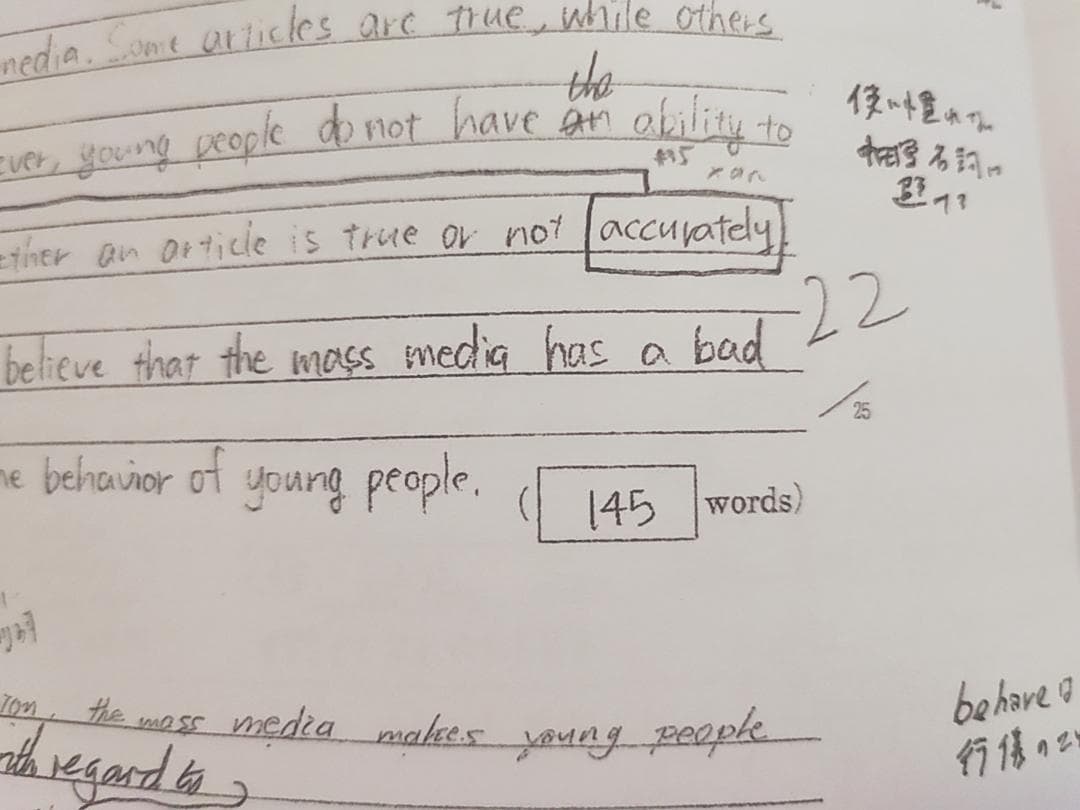 media. Some articles are true, while others
the
ever, young people do not have an ability to
× an
ether an article is true or not accurately.
22
believe that the mass media has a bad
/25
he behavior of young people. (145 words)
tion, the mass media makes young people
behave は
with regard to